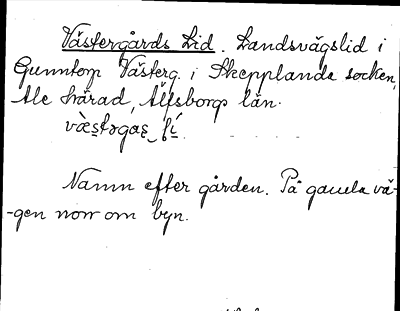 Västergårds Lid. Landsvägslid i
Gunntorp Västerg. i Skepplanda socken,
Ale härad, Älfsborgs län.
Namn efter gården. På gamla vä-
-gen norr om byn.